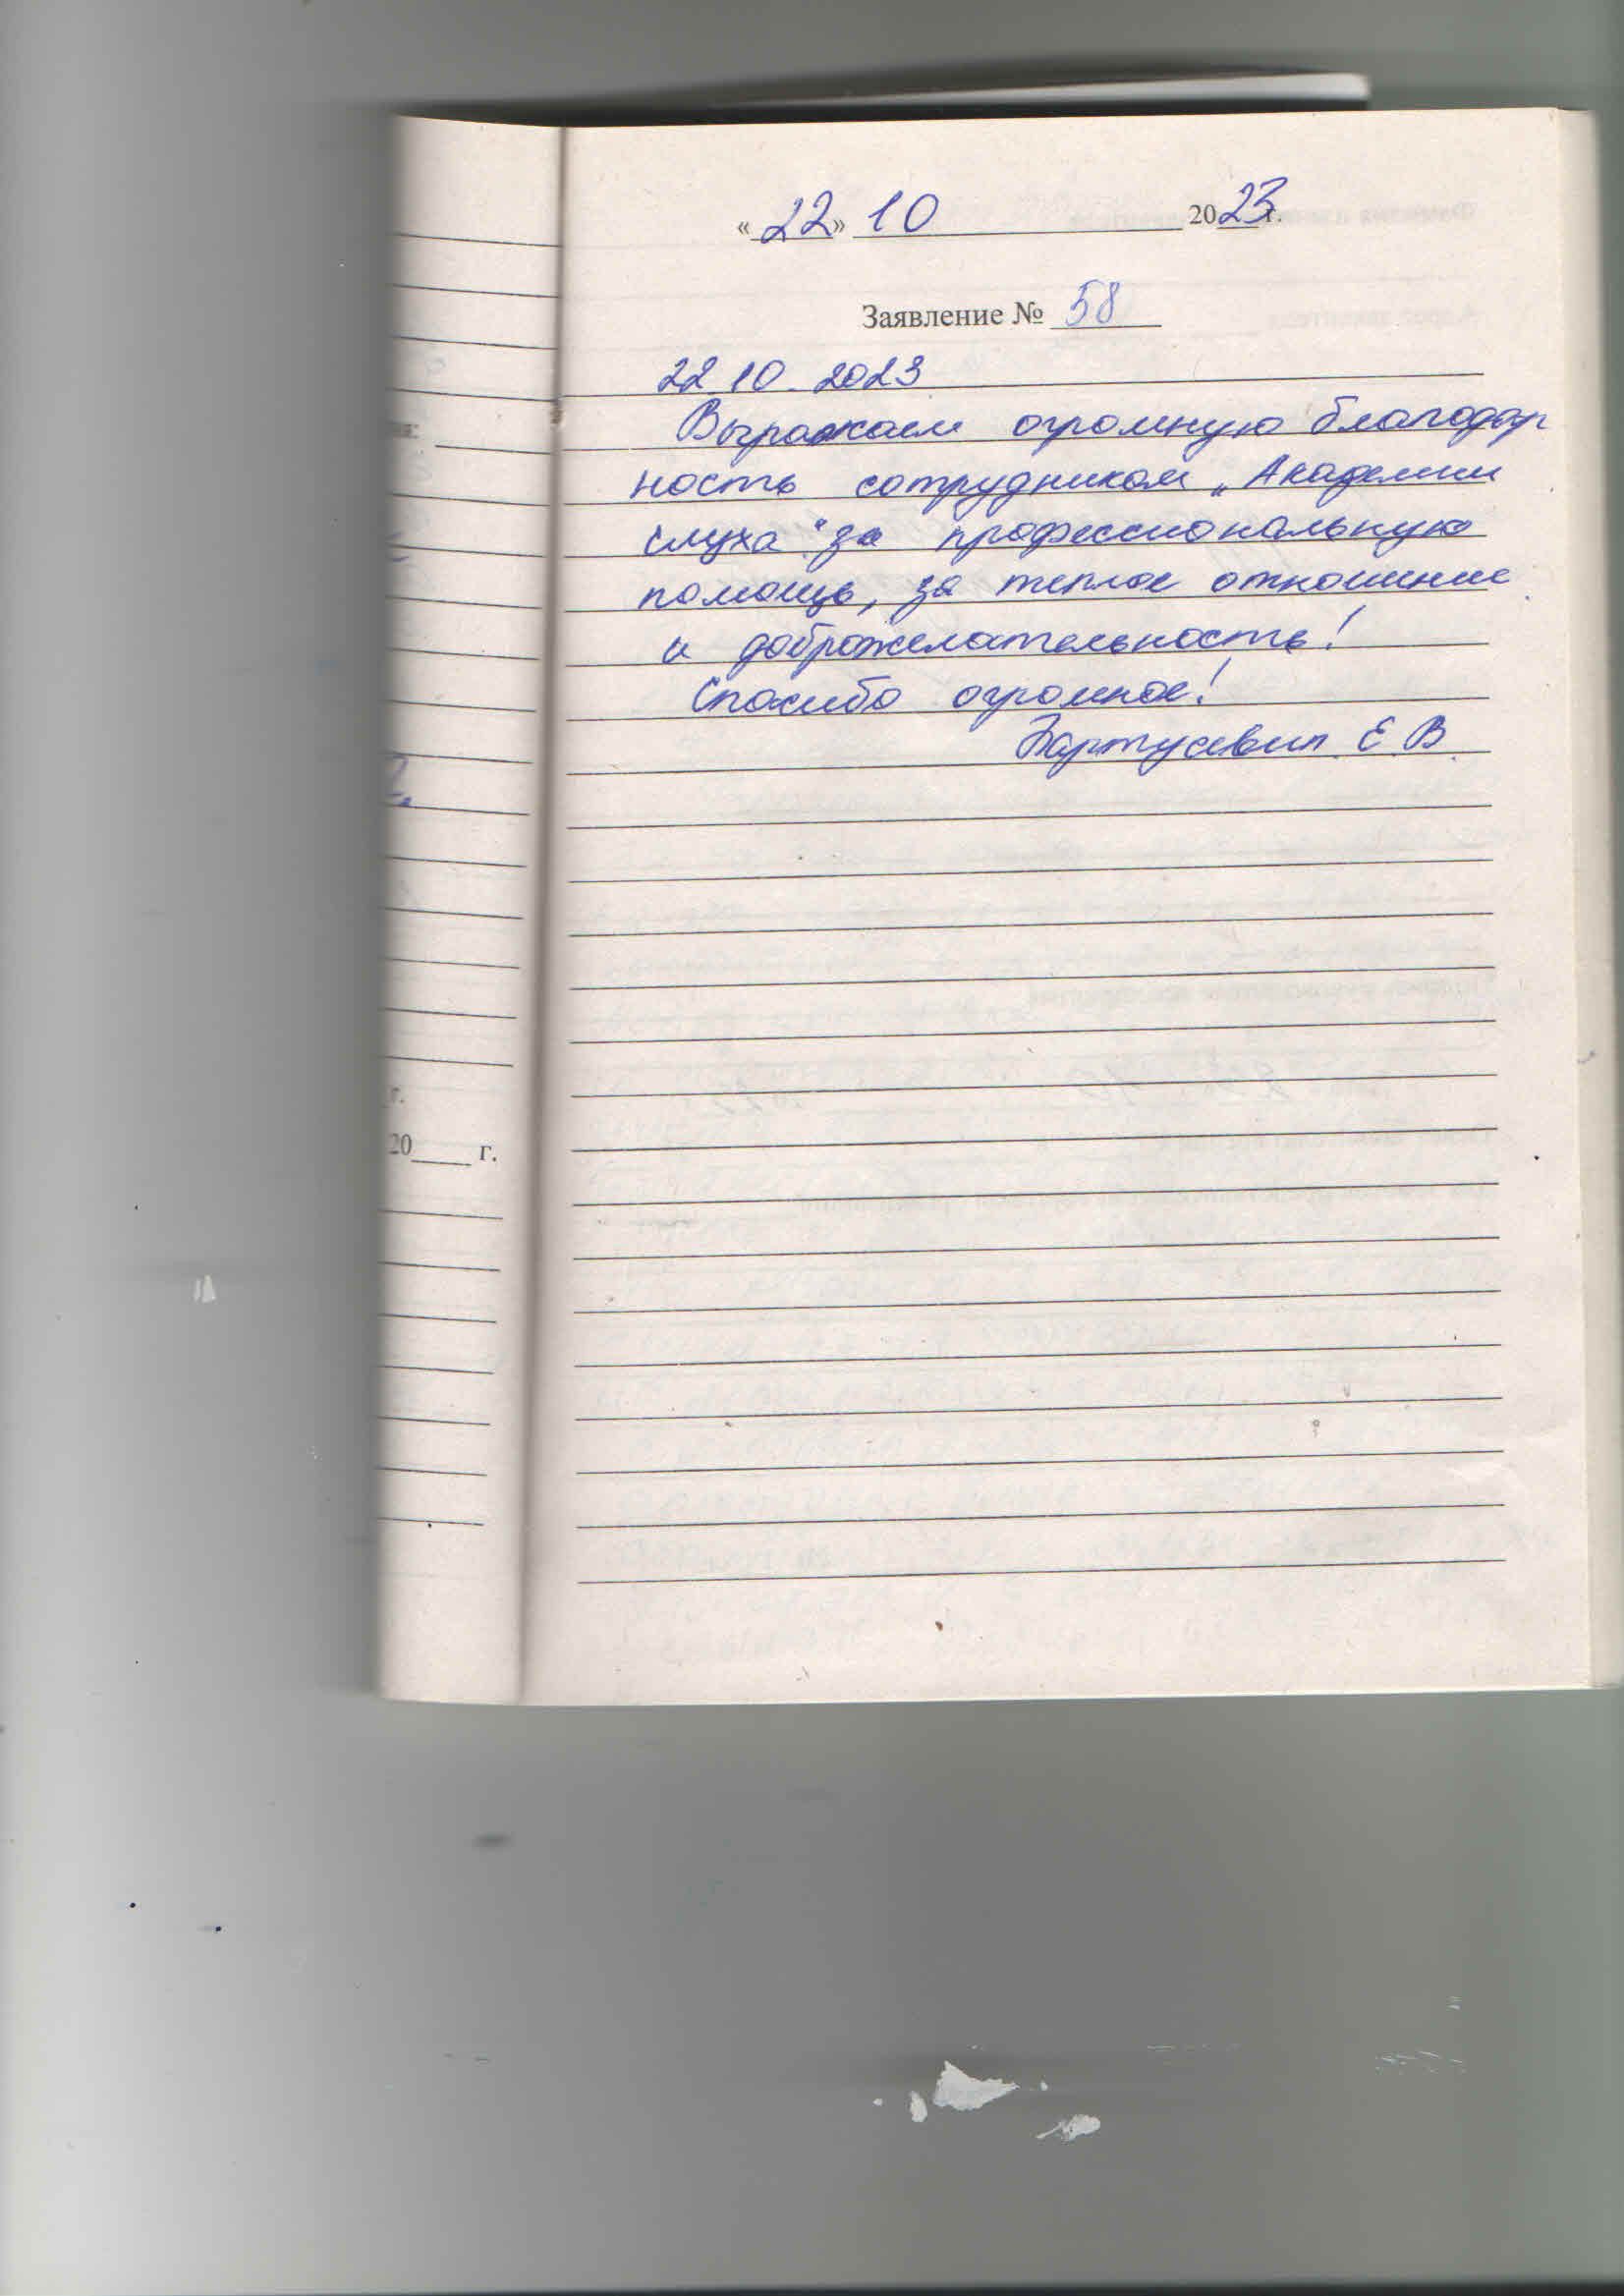 «22» 10 2023 г.
Заявление № 58
22.10.2023
Выражаем огромную благодар
ность сотрудникам „Академии
слуха“ за профессиональную
помощь, за теплое отношение
и доброжелательность!
Спасибо огромное!
Бартусевич Е.В.
20____ г.